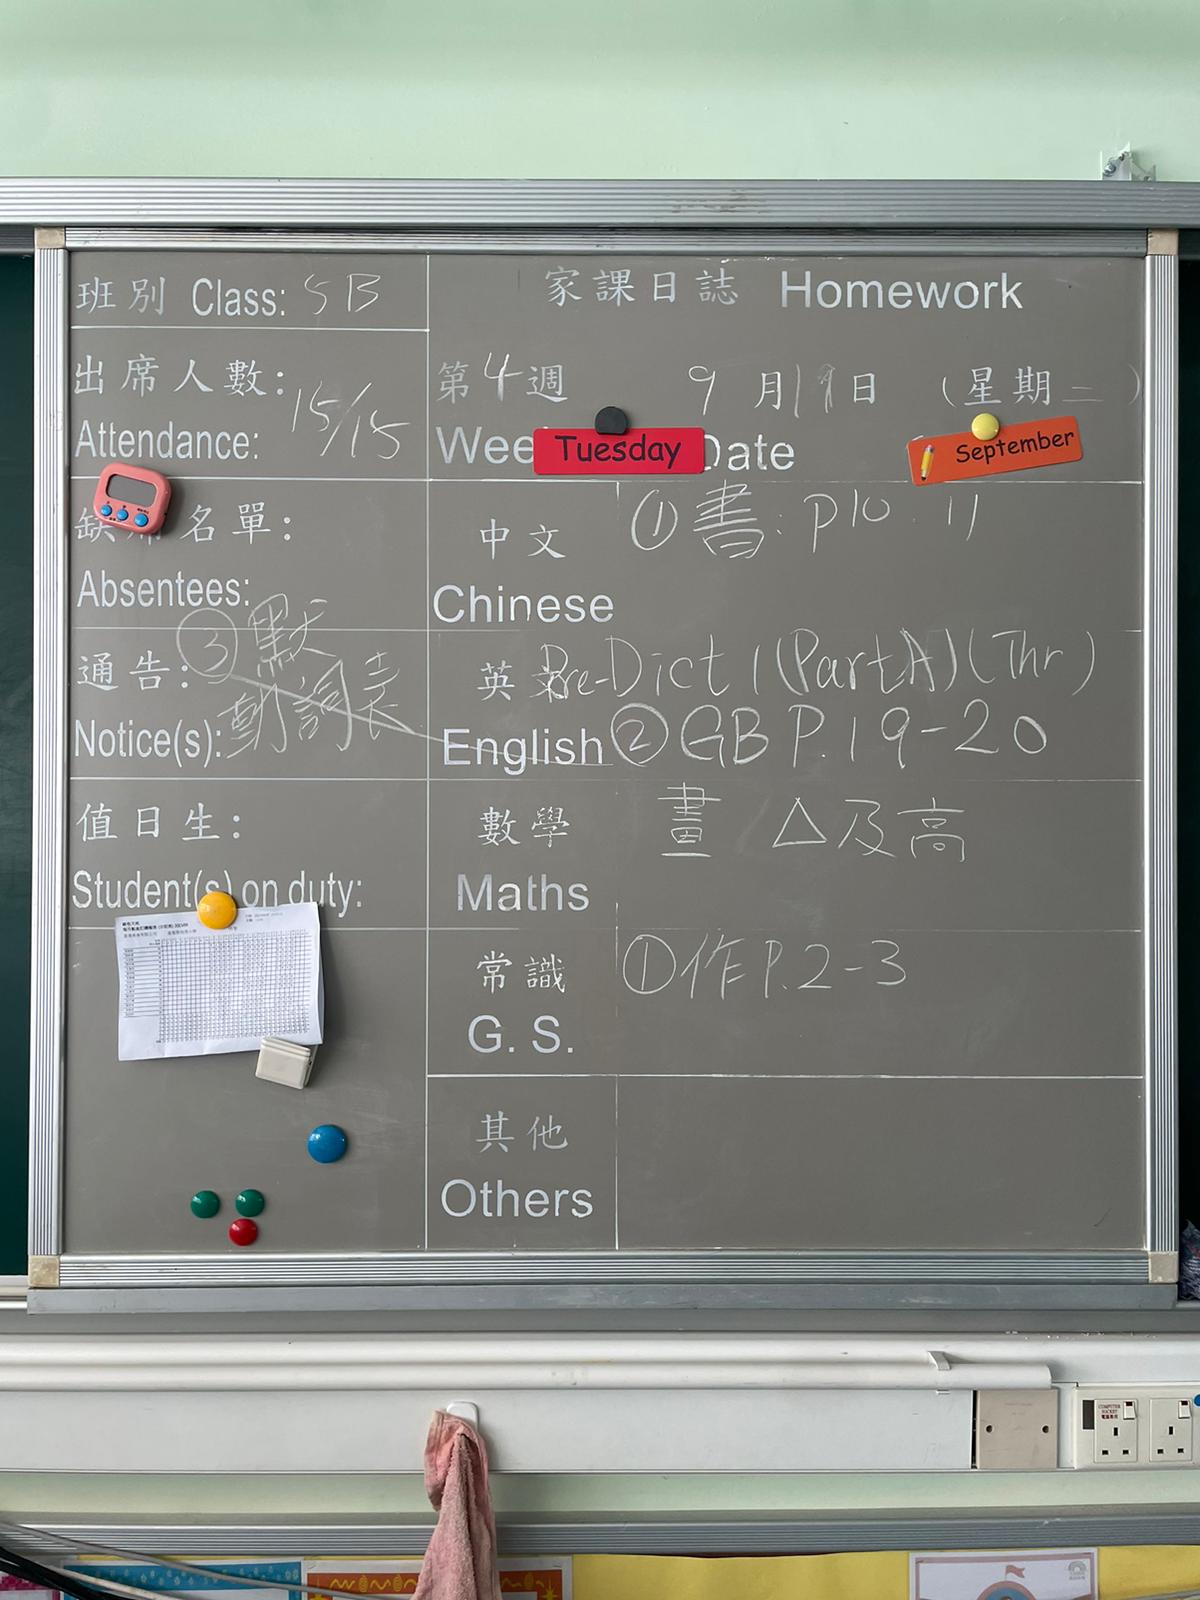 班別 Class: 5B
出席人數:
Attendance: 15/15
名單:
Absentees:
通告: ③ 默
Notice(s): 動詞表
值日生:
Student(s) on duty:
家課日誌 Homework
第4週 9月19日 (星期二)
Week Tuesday Date September
中文 ①書: P10. 11
Chinese
英文 Pre-Dict 1 (Part A) (Thr)
English ② GB P.19-20
數學 畫 △及高
Maths
常識 ①作P.2-3
G. S.
其他
Others
COMPUTER